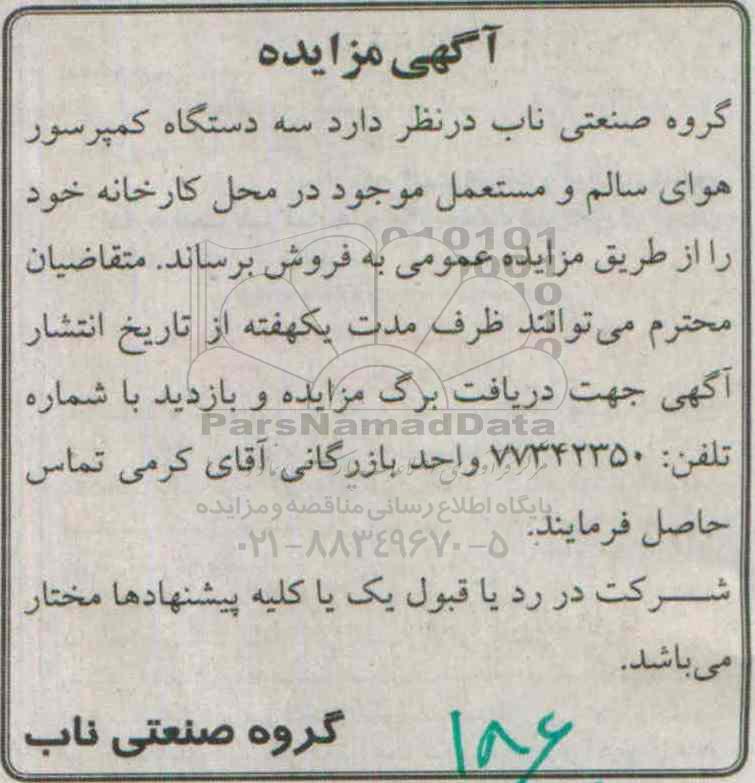 آگهی مزایده
گروه صنعتی ناب درنظر دارد سه دستگاه کمپرسور
هوای سالم و مستعمل موجود در محل کارخانه خود
را از طریق مزایده عمومی به فروش برساند. متقاضیان
محترم می‌توانند ظرف مدت یکهفته از تاریخ انتشار
آگهی جهت دریافت برگ مزایده و بازدید با شماره
ParsNamadData
تلفن: ۷۷۳۴۲۳۵۰ واحد بازرگانی آقای کرمی تماس
پایگاه اطلاع رسانی مناقصه و مزایده
حاصل فرمایند.
۰۲۱-۸۸۳۴۹۶۷۰-۵
شرکت در رد یا قبول یک یا کلیه پیشنهادها مختار
می‌باشد.
گروه صنعتی ناب
۱۸۶